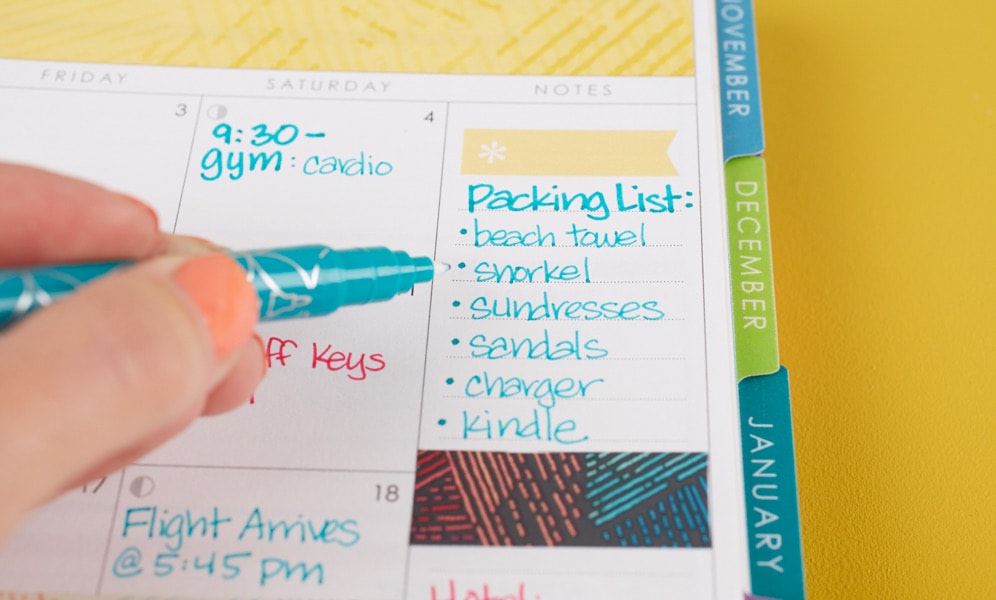 FRIDAY
SATURDAY
NOTES
3
4
9:30-
gym: cardio
Packing List:
• beach towel
• snorkel
• sundresses
• sandals
• charger
• kindle
Keys
17
18
Flight Arrives
@ 5:45 pm
Hotel:
NOVEMBER
DECEMBER
JANUARY